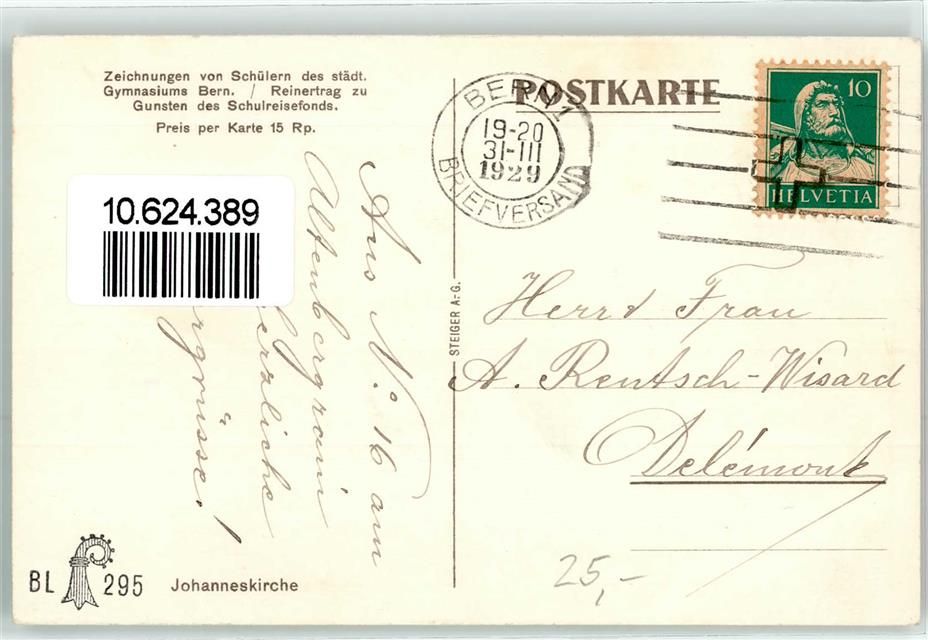 Zeichnungen von Schülern des städt.
Gymnasiums Bern. / Reinertrag zu
Gunsten des Schulreisefonds.
Preis per Karte 15 Rp.
POSTKARTE
BERN 1
19-20
31-III
1929
BRIEFVERSAND
10
HELVETIA
10.624.389
Aus No 16 am
Altenbergrain
herzliche
rgrüsse!
STEIGER A.-G.
Herrn Frau
A. Rentsch-Wisard
Delémont
25,-
BL 295
Johanneskirche